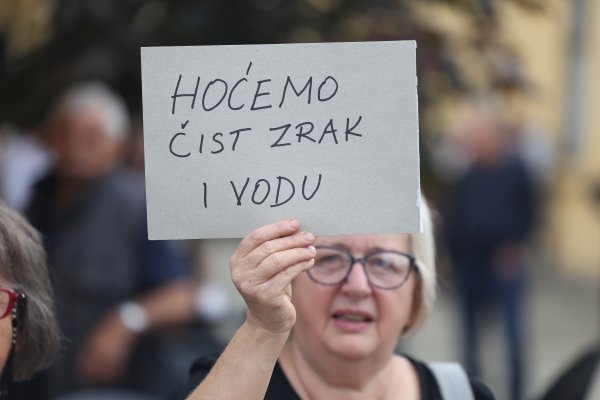 HOĆEMO
ČIST ZRAK
I VODU